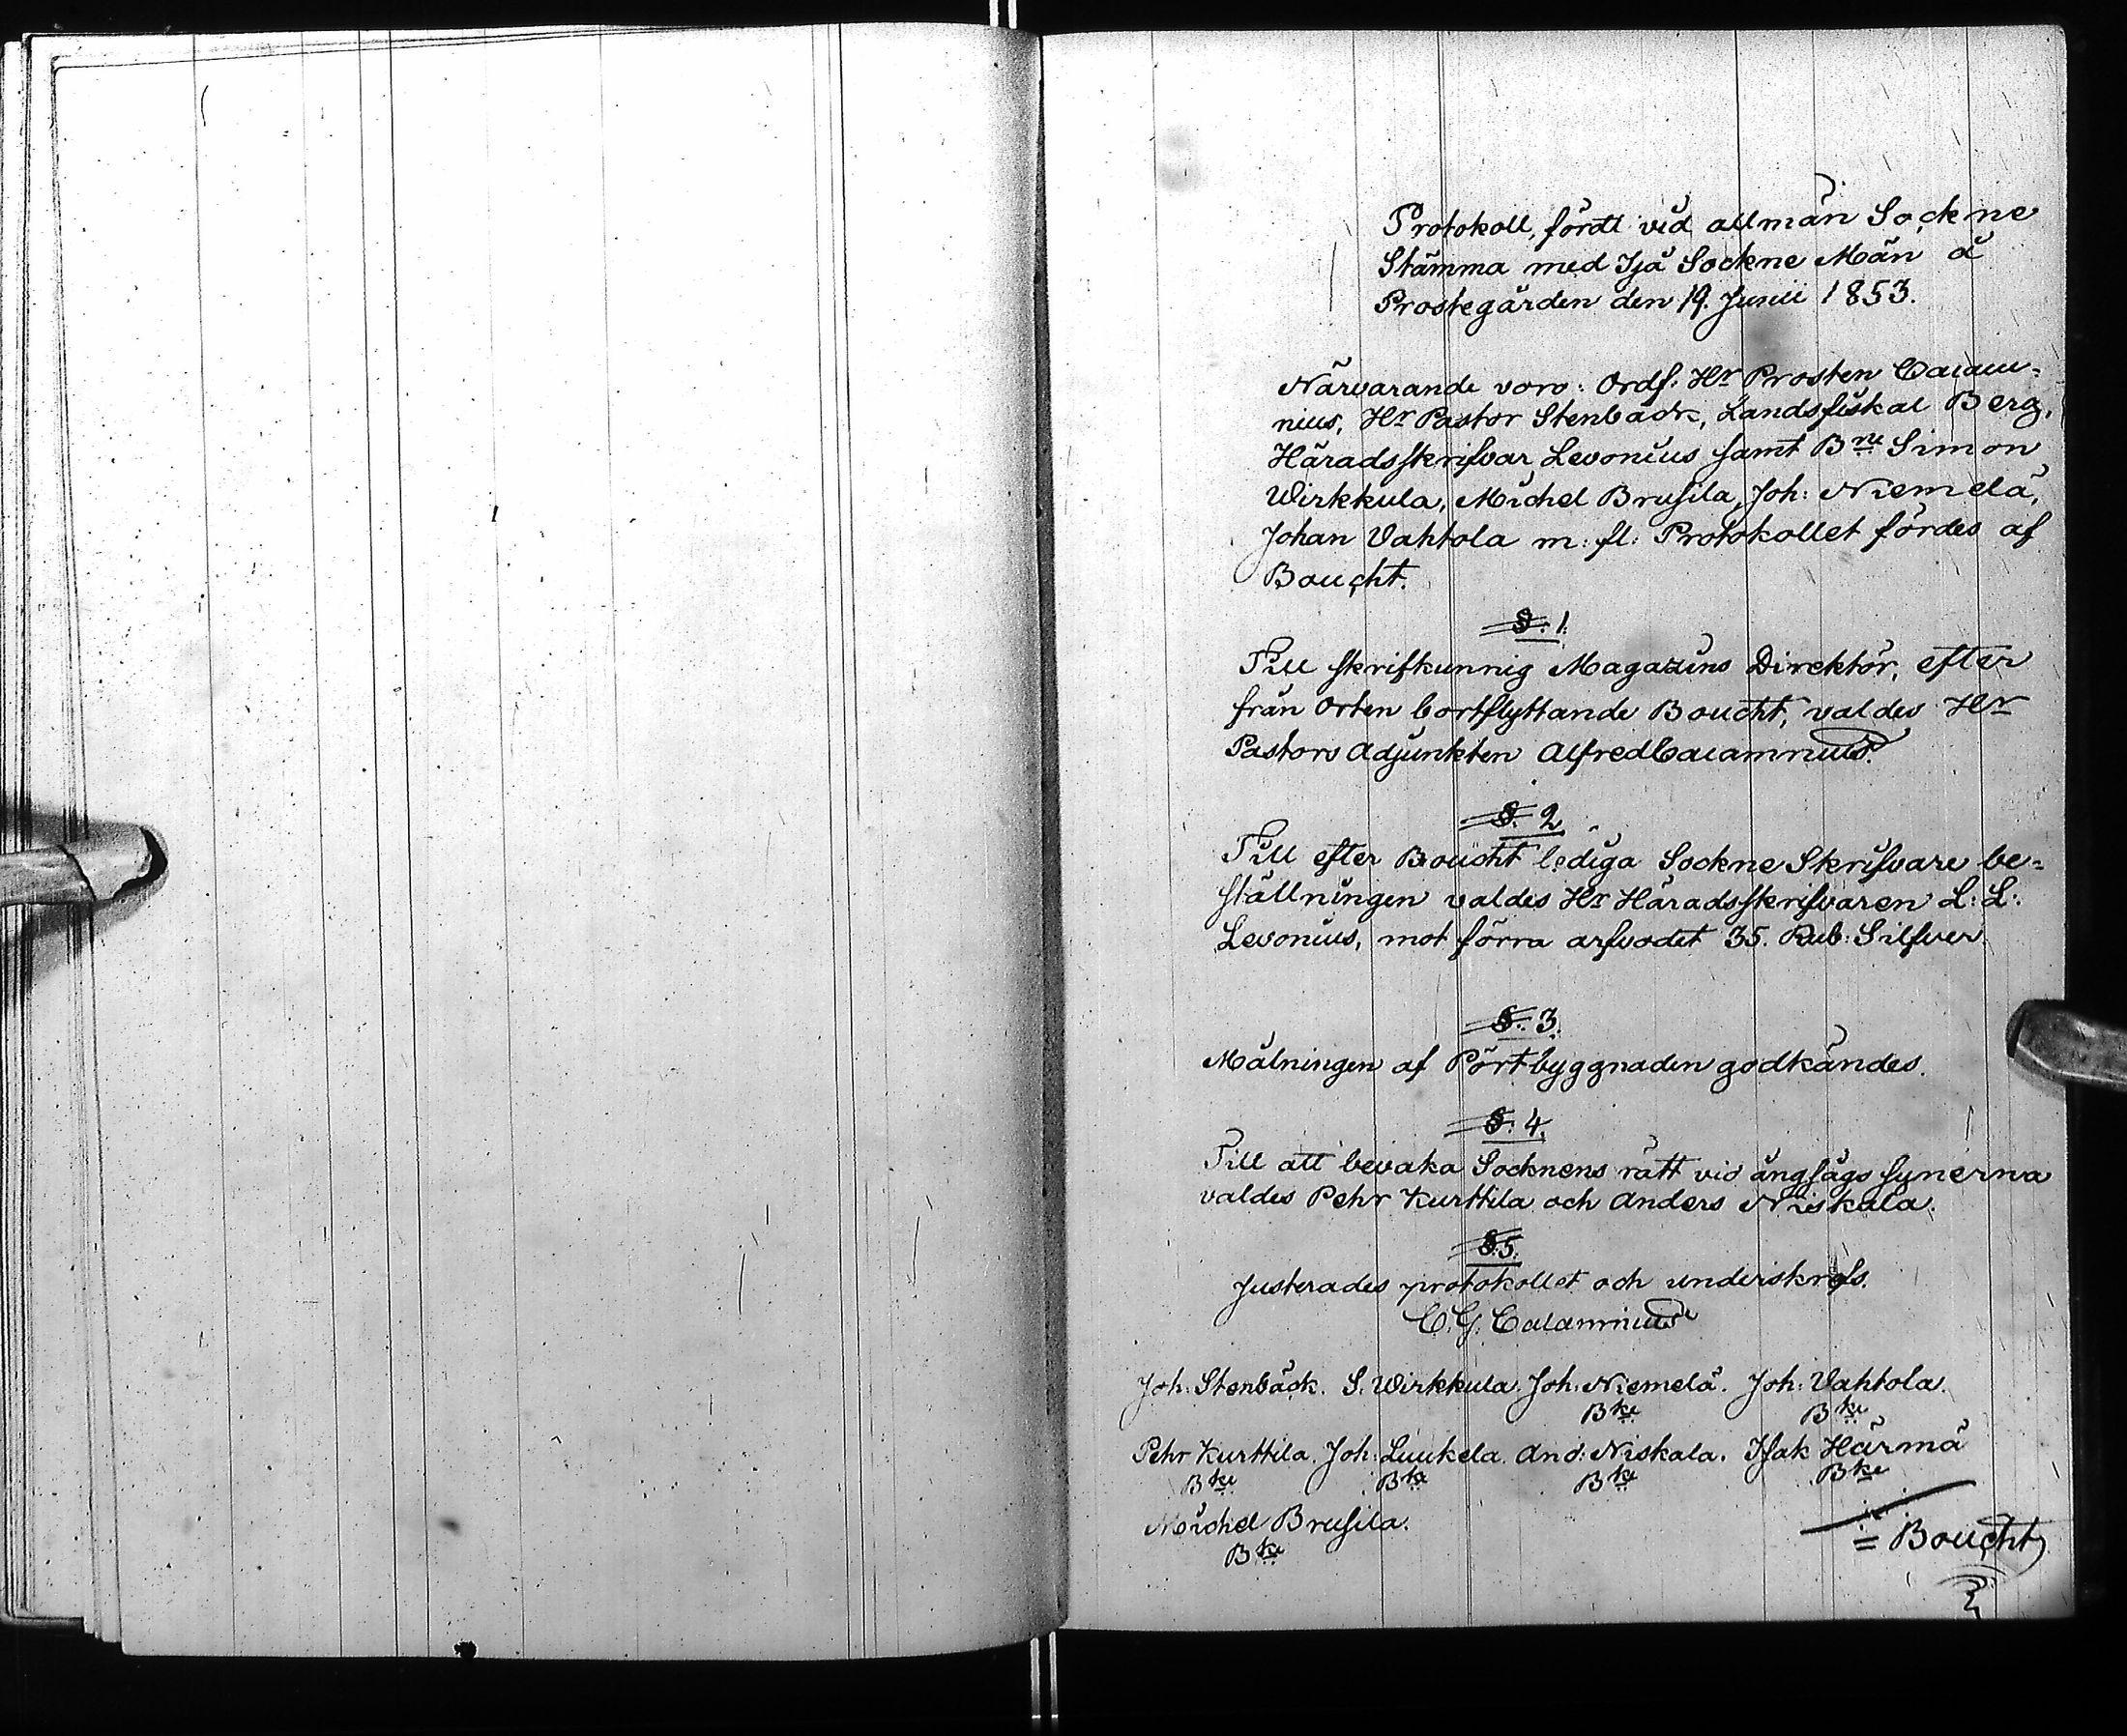 Protokoll, fördt vid allmän Sockne
Stämma med Ijå Sockne Män å
Prostegården den 19. Junii 1853.
Närvarande voro: Ordf: Hr Prosten Calam-
nius, Hr Pastor Stenbäck, Landsfiskal Berg,
Häradsskrifvar Levonius samt Bne Simon
Wirkkula, Michel Brusila, Joh: Niemelä,
Johan Vahtola m: fl: Protokollet fördes af
Boucht.
§. 1.
Till skrifkunnig Magazins Direktör, efter
från Orten bortflyttande Boucht, valdes Hr
Pastors Adjunkten Alfred Calamnius.
§. 2
Till efter Boucht lediga Sockne Skrifvare be-
ställningen valdes Hr Häradsskrifvaren L: L:
Levonius, mot förra arfvodet 35. Rub: Silfver
§. 3.
Målningen af Pörtbyggnaden godkändes.
§. 4.
Till att bevaka Socknens rätt vid ångsågs synerna
valdes Pehr Kurttila och Anders Niskala.
§. 5.
Justerades protokollet och underskrefs.
C. G: Calamnius
Joh: Stenbäck. S. Wirkkula. Joh: Niemelä. Joh: Vahtola.
Bke Bke
Pehr Kurttila. Joh: Luukela. And: Niskala. Isak Härmä
Bke Bke Bke Bke
Michel Brusila.
Bke
Boucht